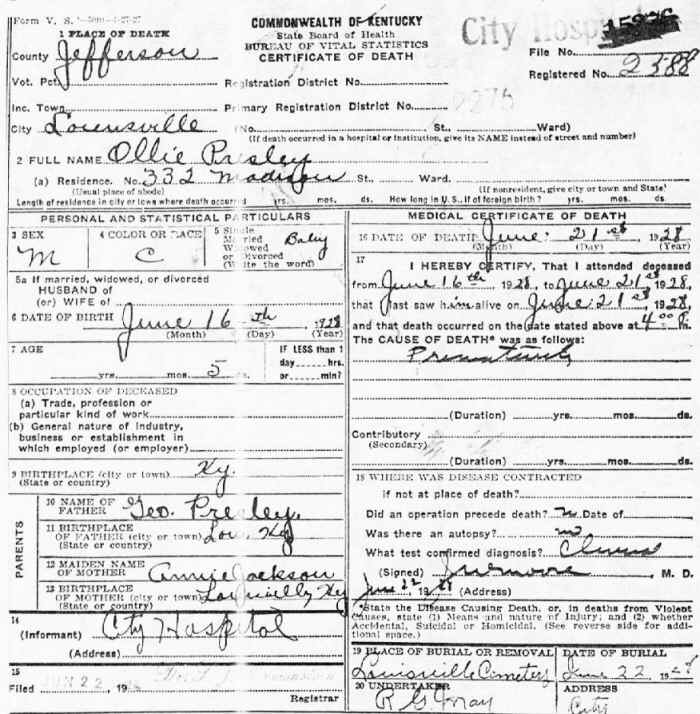 Form V. S.
COMMONWEALTH OF KENTUCKY
State Board of Health
BUREAU OF VITAL STATISTICS
CERTIFICATE OF DEATH
City Hospital
File No.
Registered No. 2588
1 PLACE OF DEATH
County Jefferson
Vot. Pct. Registration District No.
Inc. Town Primary Registration District No.
City Louisville (No. St., Ward)
(If death occurred in a hospital or institution, give its NAME instead of street and number)
2 FULL NAME Ollie Presley
(a) Residence. No. 332 Madison St., Ward.
(Usual place of abode) (If nonresident, give city or town and State)
Length of residence in city or town where death occurred yrs. mos. ds. How long in U. S., if of foreign birth? yrs. mos. ds.
PERSONAL AND STATISTICAL PARTICULARS
3 SEX M
4 COLOR OR RACE C
5 Single Married Widowed or Divorced (Write the word) Baby
5a If married, widowed, or divorced
HUSBAND of
(or) WIFE of
6 DATE OF BIRTH June 16th 1928
(Month) (Day) (Year)
7 AGE yrs. mos. 5
IF LESS than 1
day hrs.
or min?
8 OCCUPATION OF DECEASED
(a) Trade, profession or
particular kind of work
(b) General nature of industry,
business or establishment in
which employed (or employer)
9 BIRTHPLACE (city or town) Ky.
(State or country)
PARENTS
10 NAME OF
FATHER Geo. Presley,
11 BIRTHPLACE
OF FATHER (city or town) Lou. Ky
(State or country)
12 MAIDEN NAME
OF MOTHER Annie Jackson
13 BIRTHPLACE
OF MOTHER (city or town) Louisville Ky
(State or country)
14
(Informant) City Hospital
(Address)
15
Filed JUN 22, 19
Registrar
MEDICAL CERTIFICATE OF DEATH
16 DATE OF DEATH June 21st 1928
(Month) (Day) (Year)
17
I HEREBY CERTIFY, That I attended deceased
from June 16th 1928, to June 21st 1928,
that I last saw him alive on June 21st 1928,
and that death occurred on the date stated above at 4 00 P. m.
The CAUSE OF DEATH* was as follows:
Prematurely
(Duration) yrs. mos. ds.
Contributory
(Secondary)
(Duration) yrs. mos. ds.
18 WHERE WAS DISEASE CONTRACTED
if not at place of death?
Did an operation precede death? n Date of
Was there an autopsy? n
What test confirmed diagnosis?
(Signed) M. D.
June 22, 1928 (Address)
*State the Disease Causing Death, or, in deaths from Violent
Causes, state (1) Means and nature of Injury; and (2) whether
Accidental, Suicidal or Homicidal. (See reverse side for addi-
tional space.)
19 PLACE OF BURIAL OR REMOVAL
Louisville Cemetery
DATE OF BURIAL
June 22 1928
20 UNDERTAKER
R G May
ADDRESS
City